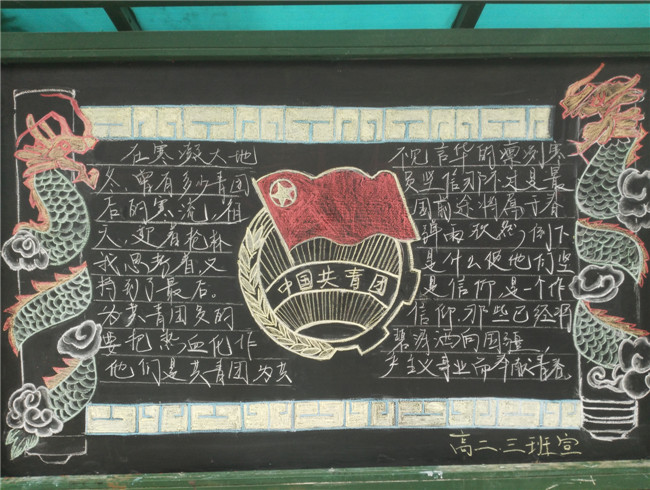 在寒凝大地
不见青华的凛冽寒
冬,曾有多少青团
员坚信那不过是最
后的寒流,祖
国前途将属于春
天,迎着枪林
弹雨毅然,倒下
我思考着,又
是什么使他们坚
持到了最后。
是信仰是一个作
为共青团员的
信仰,那些已经将
要把热血化作
碧涛洒向国疆
他们是共青团为共
产主义事业而奉献青春
中国共青团
高二.三班宣